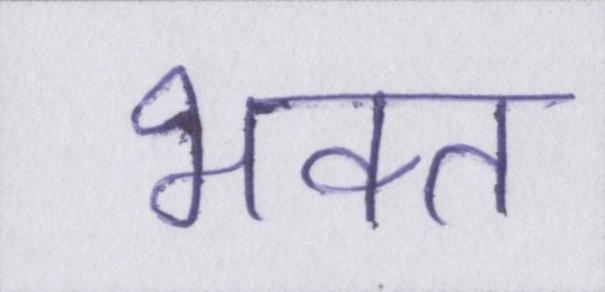 भक्त